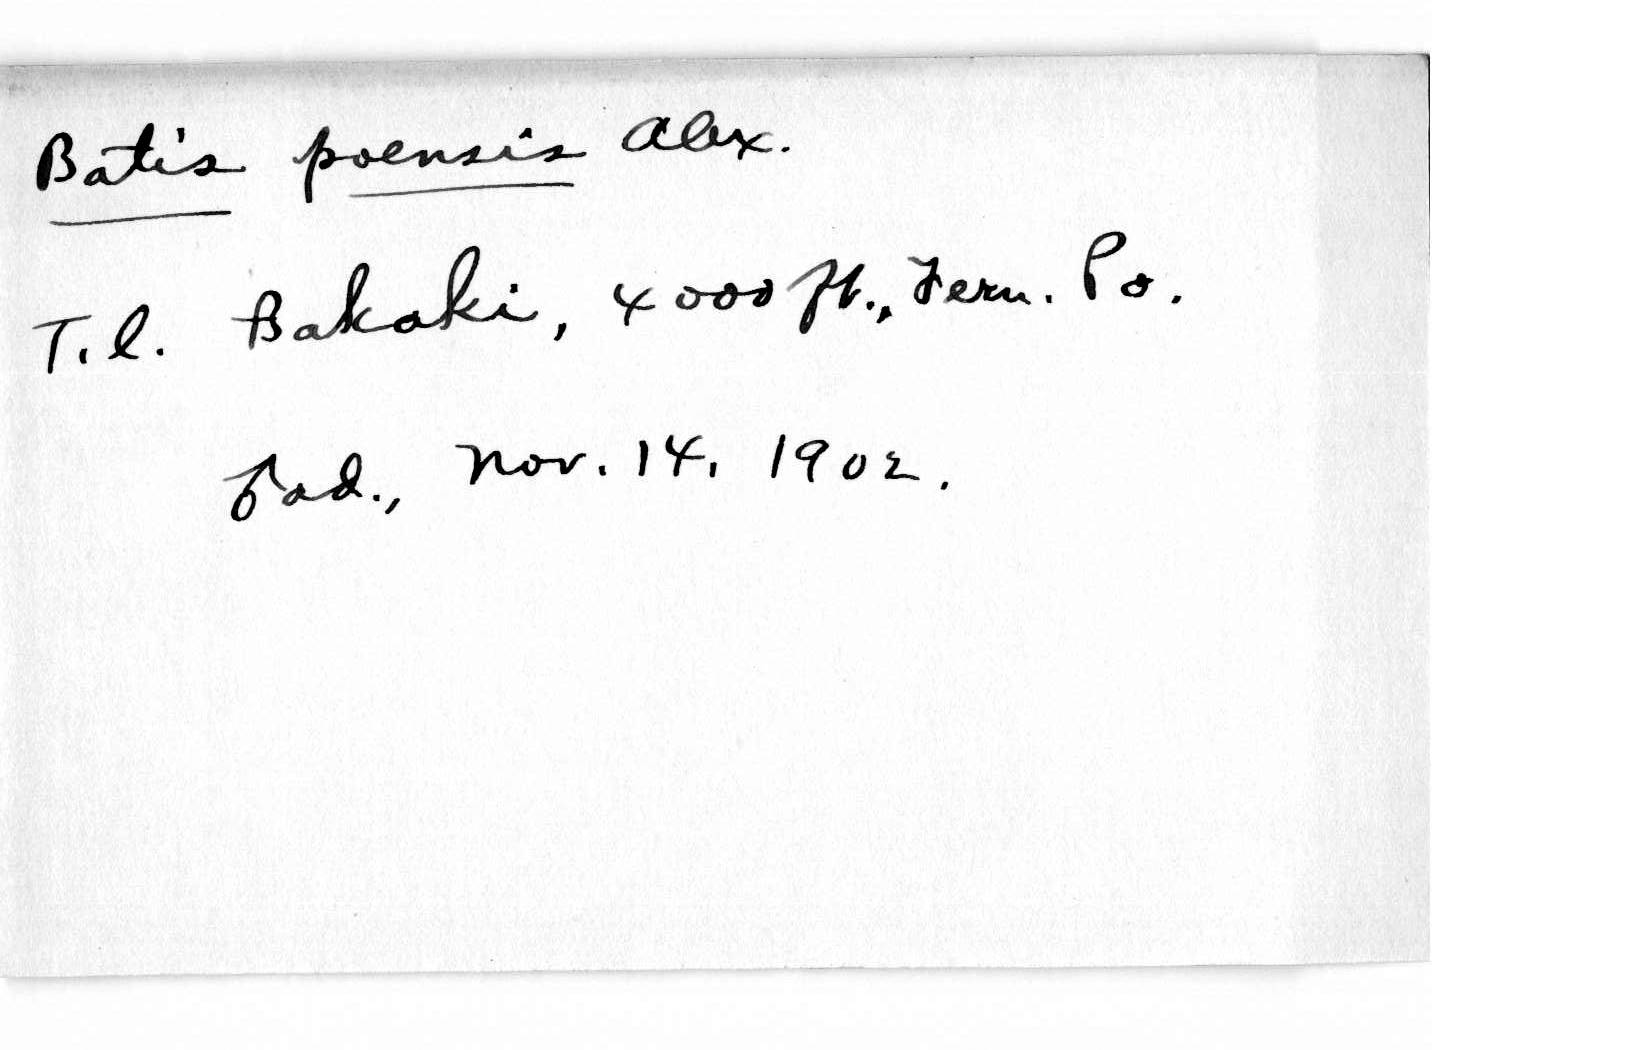 Batis poensis Alex.
T.l. Bakaki, 4000 ft., Fern. Po.
♂ ad., Nov. 14, 1902.